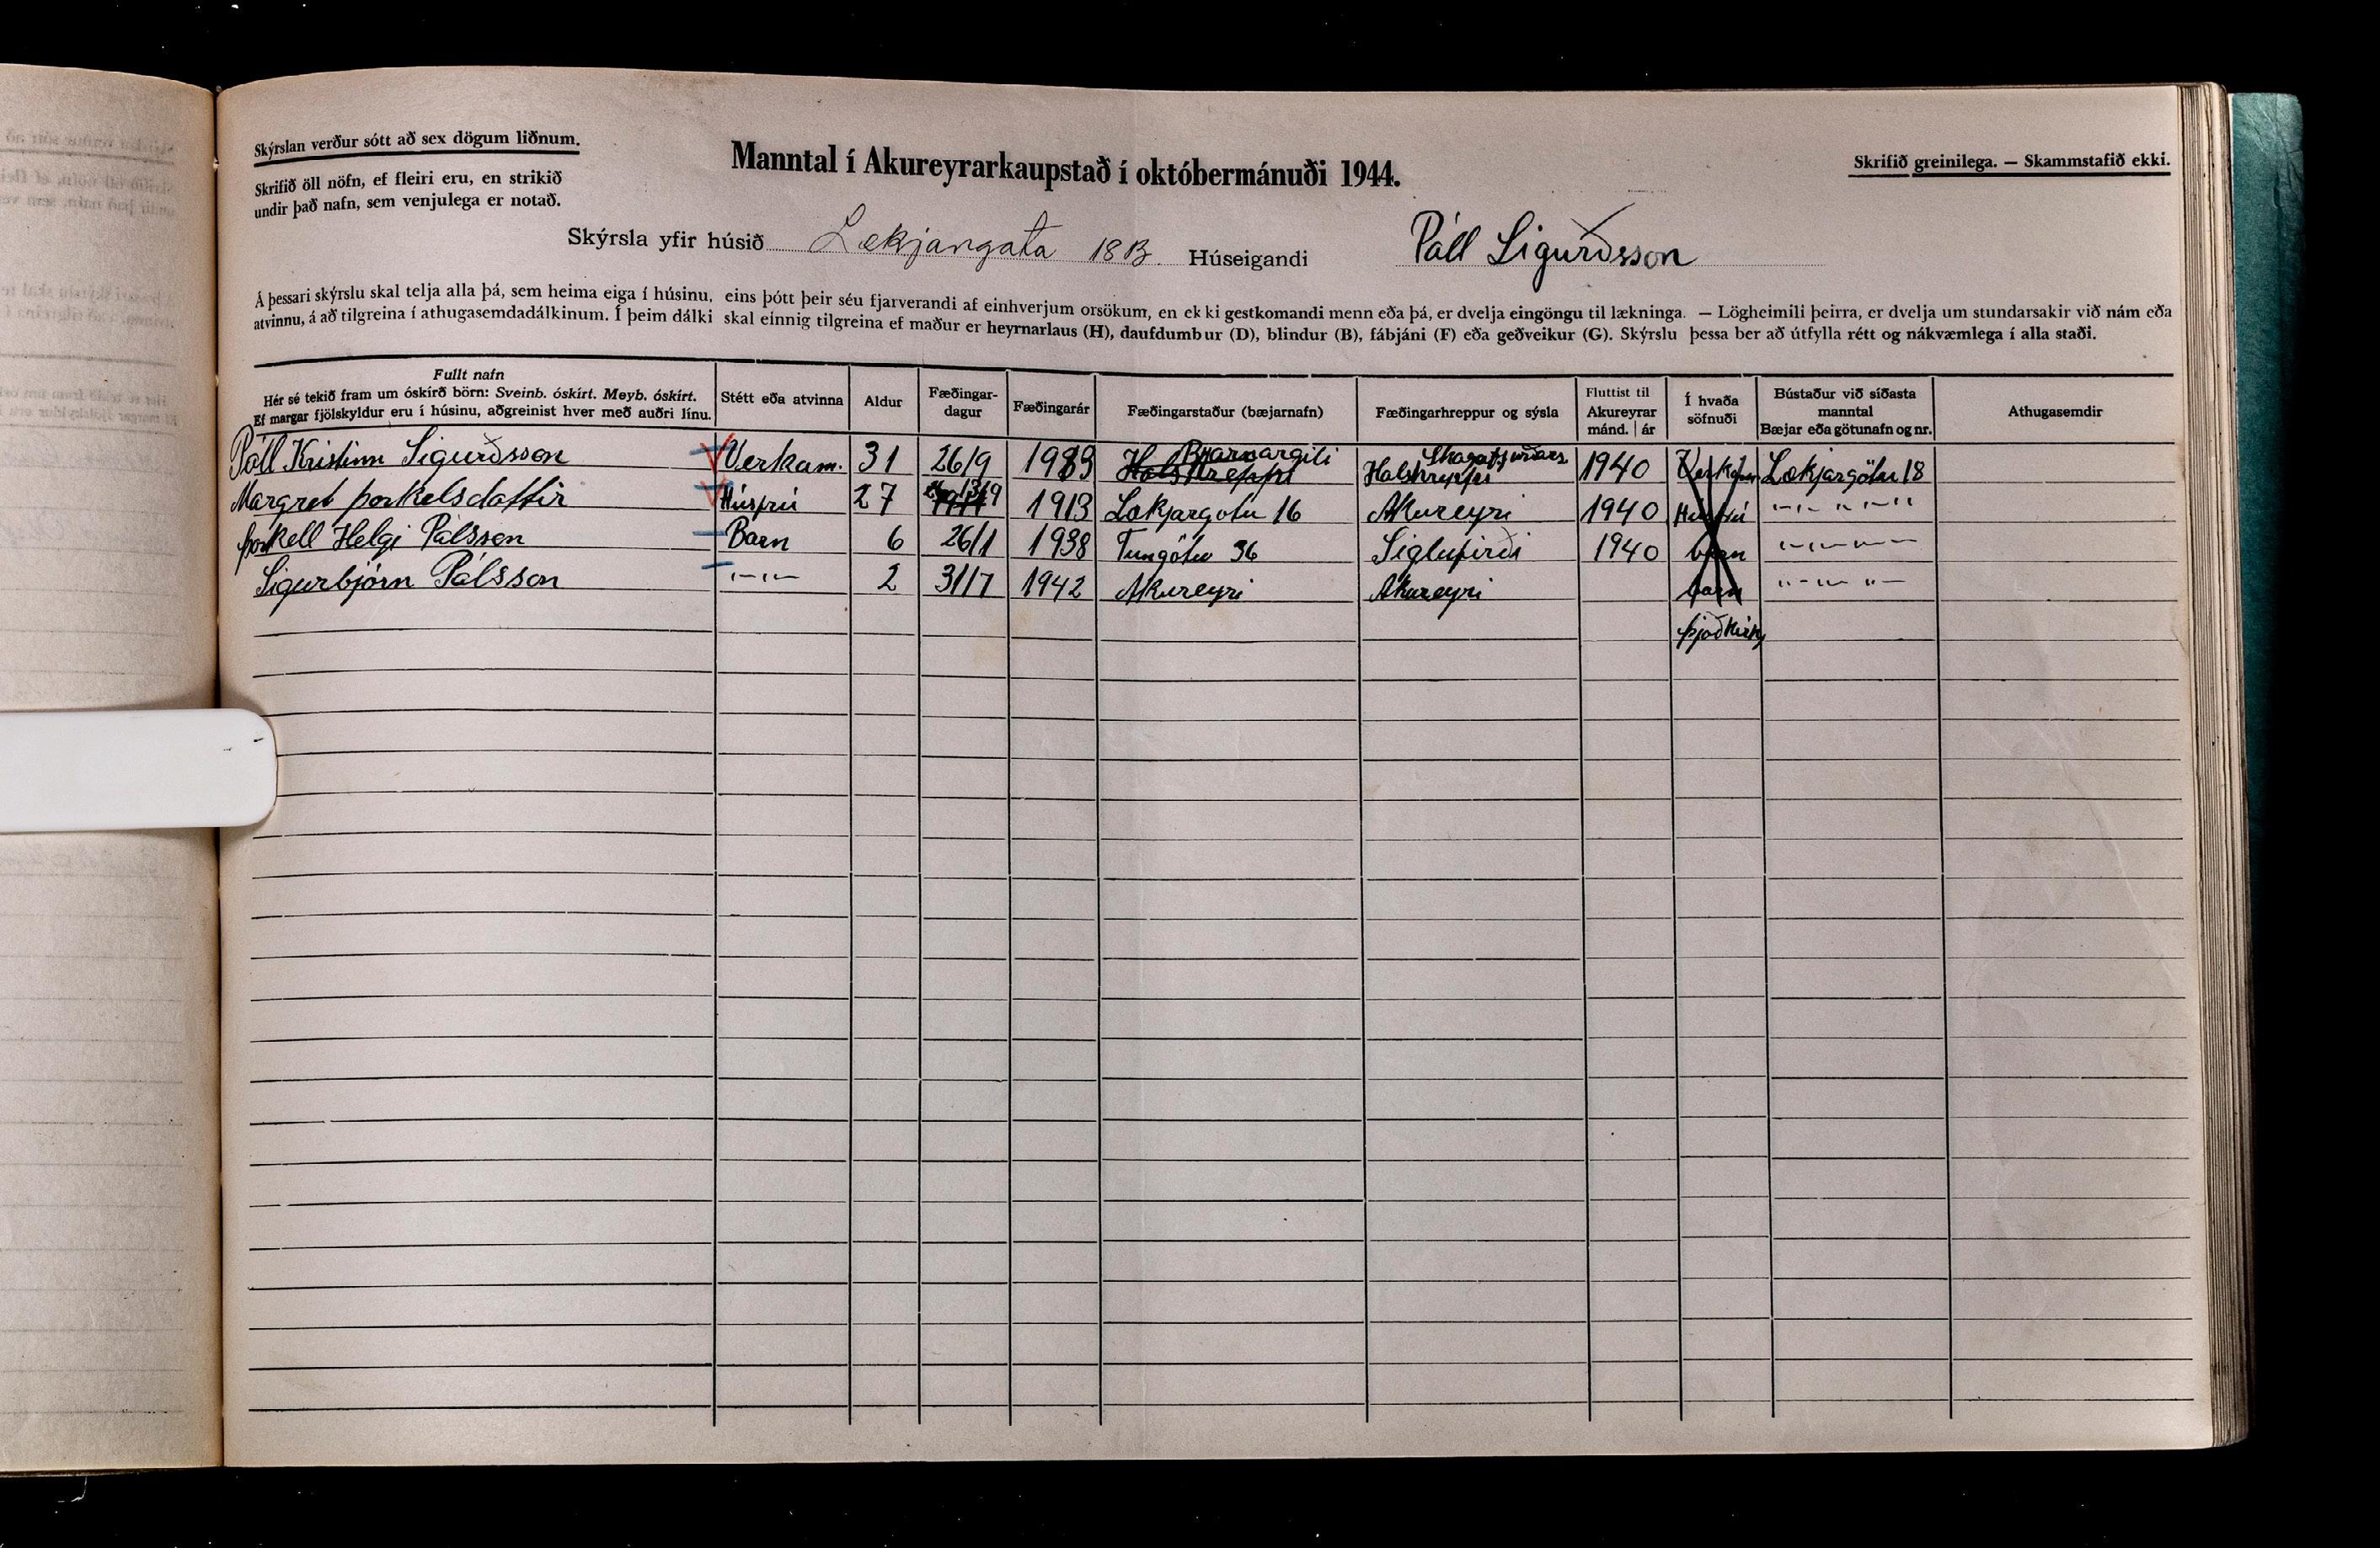 Skýrslan verður sótt að sex dögum liðnum.
Skrifið öll nöfn, ef fleiri eru, en strikið
undir það nafn, sem venjulega er notað.
Manntal í Akureyrarkaupstað í októbermánuði 1944.
Skrifið greinilega. — Skammstafið ekki.
Skýrsla yfir húsið Lækjargata 18B. Húseigandi Páll Sigurðsson
Á þessari skýrslu skal telja alla þá, sem heima eiga í húsinu, eins þótt þeir séu fjarverandi af einhverjum orsökum, en ekki gestkomandi menn eða þá, er dvelja eingöngu til lækninga. — Lögheimili þeirra, er dvelja um stundarsakir við nám eða
atvinnu, á að tilgreina í athugasemdadálkinum. Í þeim dálki skal einnig tilgreina ef maður er heyrnarlaus (H), daufdumbur (D), blindur (B), fábjáni (F) eða geðveikur (G). Skýrslu þessa ber að útfylla rétt og nákvæmlega í alla staði.
Fullt nafn
Hér sé tekið fram um óskírð börn: Sveinb. óskírt. Meyb. óskírt.
Ef margar fjölskyldur eru í húsinu, aðgreinist hver með auðri línu.
Stétt eða atvinna
Aldur
Fæðingar-
dagur
Fæðingarár
Fæðingarstaður (bæjarnafn)
Fæðingarhreppur og sýsla
Fluttist til
Akureyrar
mánd. | ár
Í hvaða
söfnuði
Bústaður við síðasta
manntal
Bæjar eða götunafn og nr.
Athugasemdir
Páll Kristinn Sigurðsson Verkam. 31 26/9 Brarnargili Halshreppi 1940 Lækjargötu 18
Margret þorkelsdottir Húsfrú 27 1913 Lækjargotu 16 Akureyri 1940 Húsfrú " — " " — "
þorkell Helgi Pálsson Barn 6 26/1 1938 Tungötu 36 Siglufirði 1940 barn " — " — " —
Sigurbjörn Pálsson " — " — 2 31/7 1942 Akureyri Akureyri barn " — " " —
þjoðkirkj